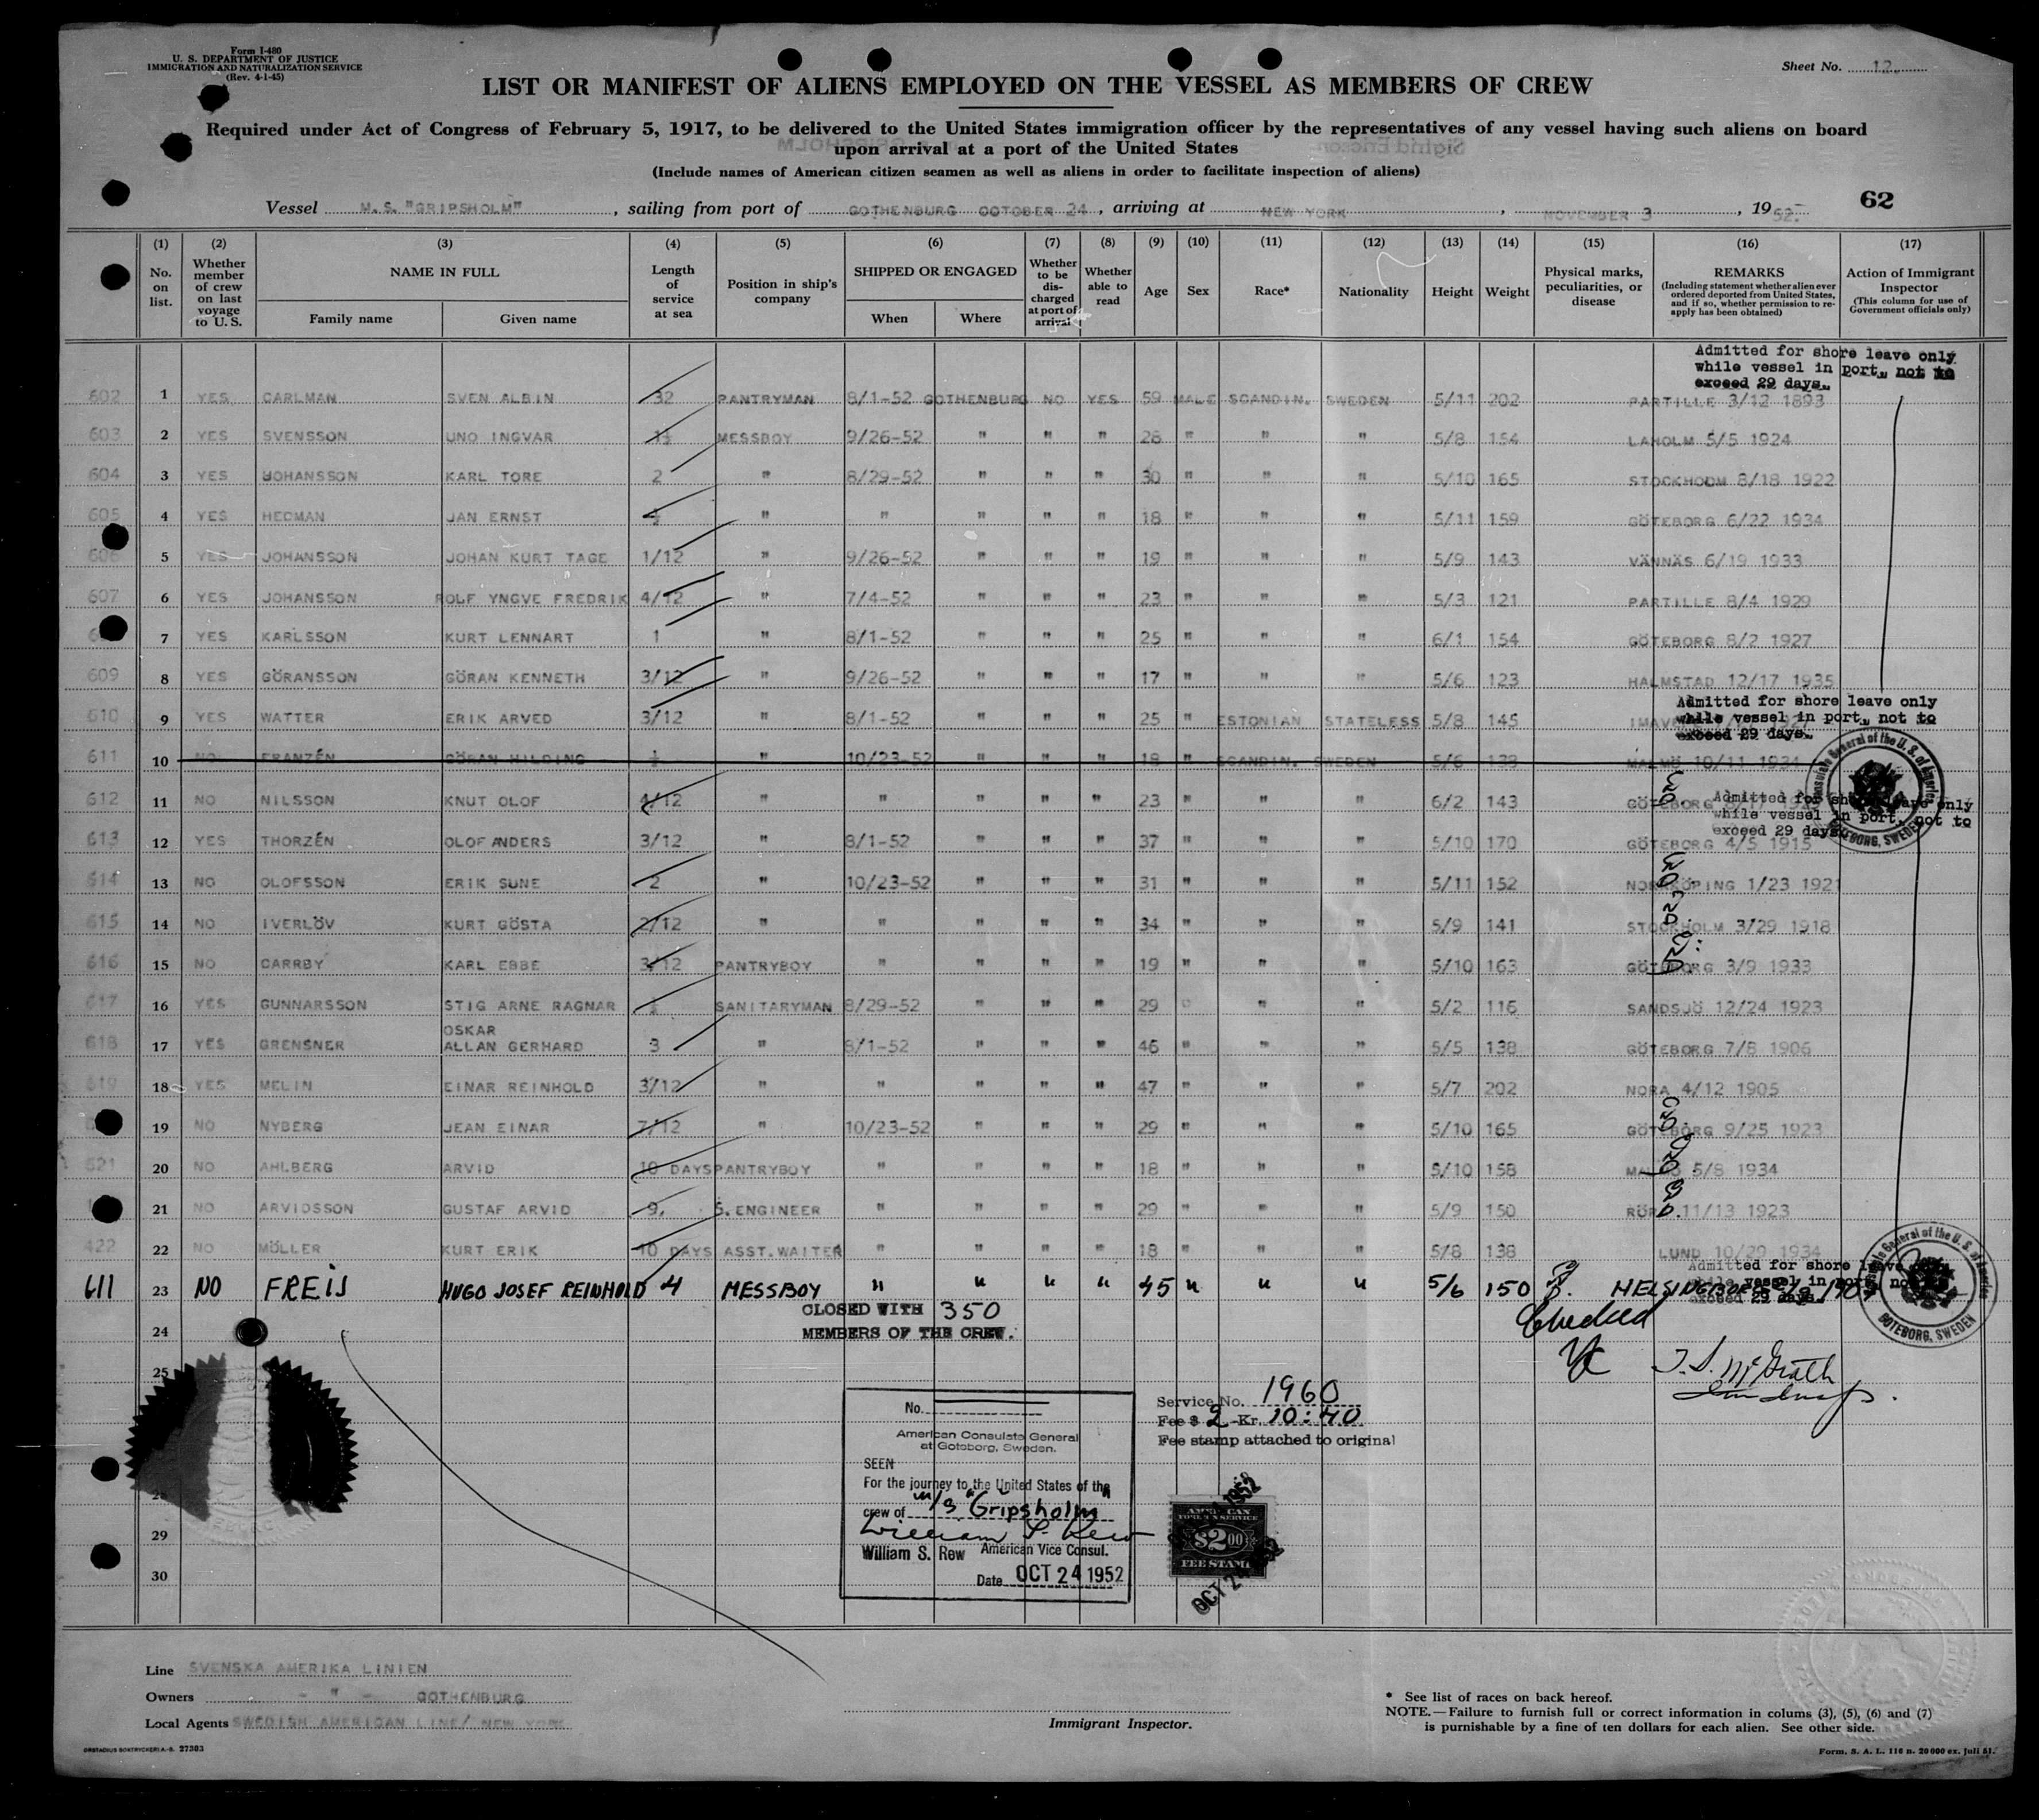 Form I-480
U. S. DEPARTMENT OF JUSTICE
IMMIGRATION AND NATURALIZATION SERVICE
(Rev. 4-1-45)
Sheet No. 12.
LIST OR MANIFEST OF ALIENS EMPLOYED ON THE VESSEL AS MEMBERS OF CREW
Required under Act of Congress of February 5, 1917, to be delivered to the United States immigration officer by the representatives of any vessel having such aliens on board
upon arrival at a port of the United States
(Include names of American citizen seamen as well as aliens in order to facilitate inspection of aliens)
62
Vessel M.S. "GRIPSHOLM", sailing from port of GOTHENBURG OCTOBER 24, arriving at NEW YORK, NOVEMBER 3, 1952.
(1) (2) (3) (4) (5) (6) (7) (8) (9) (10) (11) (12) (13) (14) (15) (16) (17)
No. on list. Whether member of crew on last voyage to U. S. NAME IN FULL Family name Given name Length of service at sea Position in ship's company SHIPPED OR ENGAGED When Where Whether to be discharged at port of arrival Whether able to read Age Sex Race* Nationality Height Weight Physical marks, peculiarities, or disease REMARKS (Including statement whether alien ever ordered deported from United States, and if so, whether permission to reapply has been obtained) Action of Immigrant Inspector (This column for use of Government officials only)
Admitted for shore leave only
while vessel in port, not to
exceed 29 days.
602 1 YES CARLMAN SVEN ALBIN 32 PANTRYMAN 8/1-52 GOTHENBURG NO YES 59 MALE SCANDIN. SWEDEN 5/11 202 PARTILLE 3/12 1893
603 2 YES SVENSSON UNO INGVAR 1½ MESSBOY 9/26-52 " " " 28 " " " 5/8 154 LAHOLM 5/5 1924
604 3 YES JOHANSSON KARL TORE 2 " 8/29-52 " " " 30 " " " 5/10 165 STOCKHOLM 8/18 1922
605 4 YES HEDMAN JAN ERNST " " " " " 18 " " " 5/11 159 GÖTEBORG 6/22 1934
606 5 YES JOHANSSON JOHAN KURT TAGE 1/12 " 9/26-52 " " " 19 " " " 5/9 143 VÄNNÄS 6/19 1933
607 6 YES JOHANSSON ROLF YNGVE FREDRIK 4/12 " 7/4-52 " " " 23 " " " 5/3 121 PARTILLE 8/4 1929
7 YES KARLSSON KURT LENNART 1 " 8/1-52 " " " 25 " " " 6/1 154 GÖTEBORG 8/2 1927
609 8 YES GÖRANSSON GÖRAN KENNETH 3/12 " 9/26-52 " " " 17 " " " 5/6 123 HALMSTAD 12/17 1935
Admitted for shore leave only
while vessel in port, not to
exceed 29 days.
610 9 YES WATTER ERIK ARVED 3/12 " 8/1-52 " " " 25 " ESTONIAN STATELESS 5/8 145
611 10 NO FRANZÉN GÖRAN HILDING ½ " 10/23-52 " " " 18 " SCANDIN. SWEDEN 5/6 138 MALMÖ 10/11 1934
612 11 NO NILSSON KNUT OLOF 4/12 " " " " " 23 " " " 6/2 143 GÖTEBORG
Admitted for shore leave only
while vessel in port, not to
exceed 29 days.
613 12 YES THORZÉN OLOF ANDERS 3/12 " 8/1-52 " " " 37 " " " 5/10 170 GÖTEBORG 4/5 1915
614 13 NO OLOFSSON ERIK SUNE 2 " 10/23-52 " " " 31 " " " 5/11 152 NORRKÖPING 1/23 1921
615 14 NO IVERLÖV KURT GÖSTA 2/12 " " " " " 34 " " " 5/9 141 STOCKHOLM 3/29 1918
616 15 NO CARRBY KARL EBBE 3/12 PANTRYBOY " " " " 19 " " " 5/10 163 GÖTEBORG 3/9 1933
617 16 YES GUNNARSSON STIG ARNE RAGNAR SANITARYMAN 8/29-52 " " " 29 " " " 5/2 116 SANDSJÖ 12/24 1923
618 17 YES GRENSNER OSKAR ALLAN GERHARD 3 " 8/1-52 " " " 46 " " " 5/5 138 GÖTEBORG 7/8 1906
619 18 YES MELIN EINAR REINHOLD 3/12 " " " " " 47 " " " 5/7 202 NORA 4/12 1905
19 NO NYBERG JEAN EINAR 7/12 " 10/23-52 " " " 29 " " " 5/10 165 GÖTEBORG 9/25 1923
621 20 NO AHLBERG ARVID 10 DAYS PANTRYBOY " " " " 18 " " " 5/10 158 MALMÖ 5/8 1934
21 NO ARVIDSSON GUSTAF ARVID 9. S. ENGINEER " " " " 29 " " " 5/9 150 11/13 1923
422 22 NO MÖLLER KURT ERIK 10 DAYS ASST. WAITER " " " " 18 " " " 5/8 138 LUND 10/29 1934
Admitted for shore leave only
while vessel in port, not to
exceed 29 days.
611 23 NO FREIJ HUGO JOSEF REINHOLD 4 MESSBOY " " " " 45 " " " 5/6 150 HELSINGBORG
CLOSED WITH 350
MEMBERS OF THE CREW.
Checked
24
25
T. S. McGrath
29
30
Consulate General of the U. S. of America
GOTEBORG, SWEDEN
Consulate General of the U. S. of America
GOTEBORG, SWEDEN
No.
American Consulate General
at Goteborg, Sweden.
SEEN
For the journey to the United States of the
crew of m/s "Gripsholm"
William S. Rew
William S. Rew American Vice Consul.
Date OCT 24 1952
Service No. 1960
Fee $ 2 -Kr. 10:40
Fee stamp attached to original
AMERICAN
FOREIGN SERVICE
$2.00
FEE STAMP
OCT 24 1952
Line SVENSKA AMERIKA LINIEN
Owners - " - GOTHENBURG
Local Agents SWEDISH AMERICAN LINE/ NEW YORK
Immigrant Inspector.
* See list of races on back hereof.
NOTE.—Failure to furnish full or correct information in colums (3), (5), (6) and (7)
is purnishable by a fine of ten dollars for each alien. See other side.
ORSTADIUS BOKTRYCKERI A.-B. 27303
Form. S. A. L. 116 n. 20 000 ex. Juli 51.